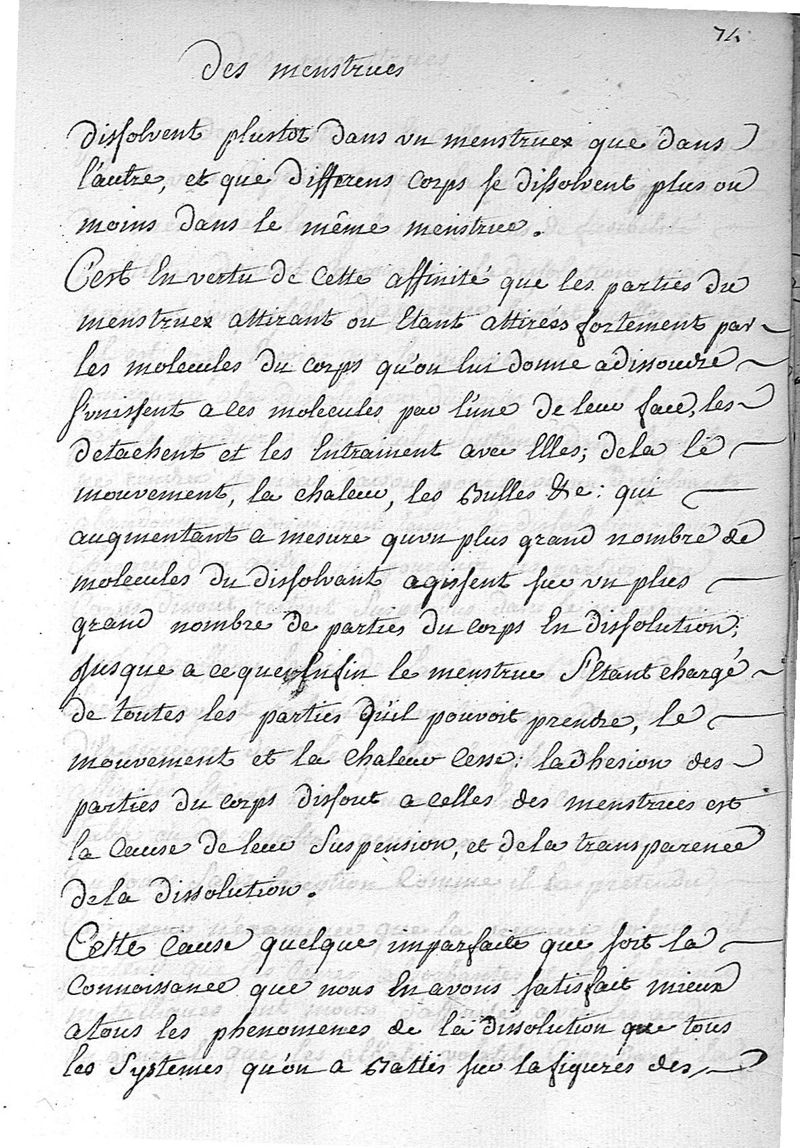 74
Des menstrues
dissolvent plustot dans un menstruex que dans
l'autre, et que differens corps se dissolvent plus ou
moins dans le même menstrue.
C'est En vertu de cette affinité que les parties du
menstruex attirant ou Etant attirées fortement par
les molecules du corps qu'on lui donne adissoudre
s'unissent a ces molecules par l'une de leur face, les
detachent et les Entrainent avec Elles; dela le
mouvement, la chaleur, les Bulles &c: qui
augmentant a mesure qu'un plus grand nombre de
molecules du dissolvant agissent sur un plus
grand nombre de parties du corps En dissolution;
jusque a ce que Enfin le menstrue s'Etant chargé
de toutes les parties qu'il pouvoit prendre, le
mouvement et la chaleur cesse: ladhesion des
parties du corps dissout a celles des menstrues est
la cause de leur suspension, et dela transparence
dela dissolution.
Cette cause quelque imparfaite que soit la
connoissance que nous En avons satisfait mieux
atous les phenomenes de la dissolution que tous
les systemes qu'on a Battis sur la figures des